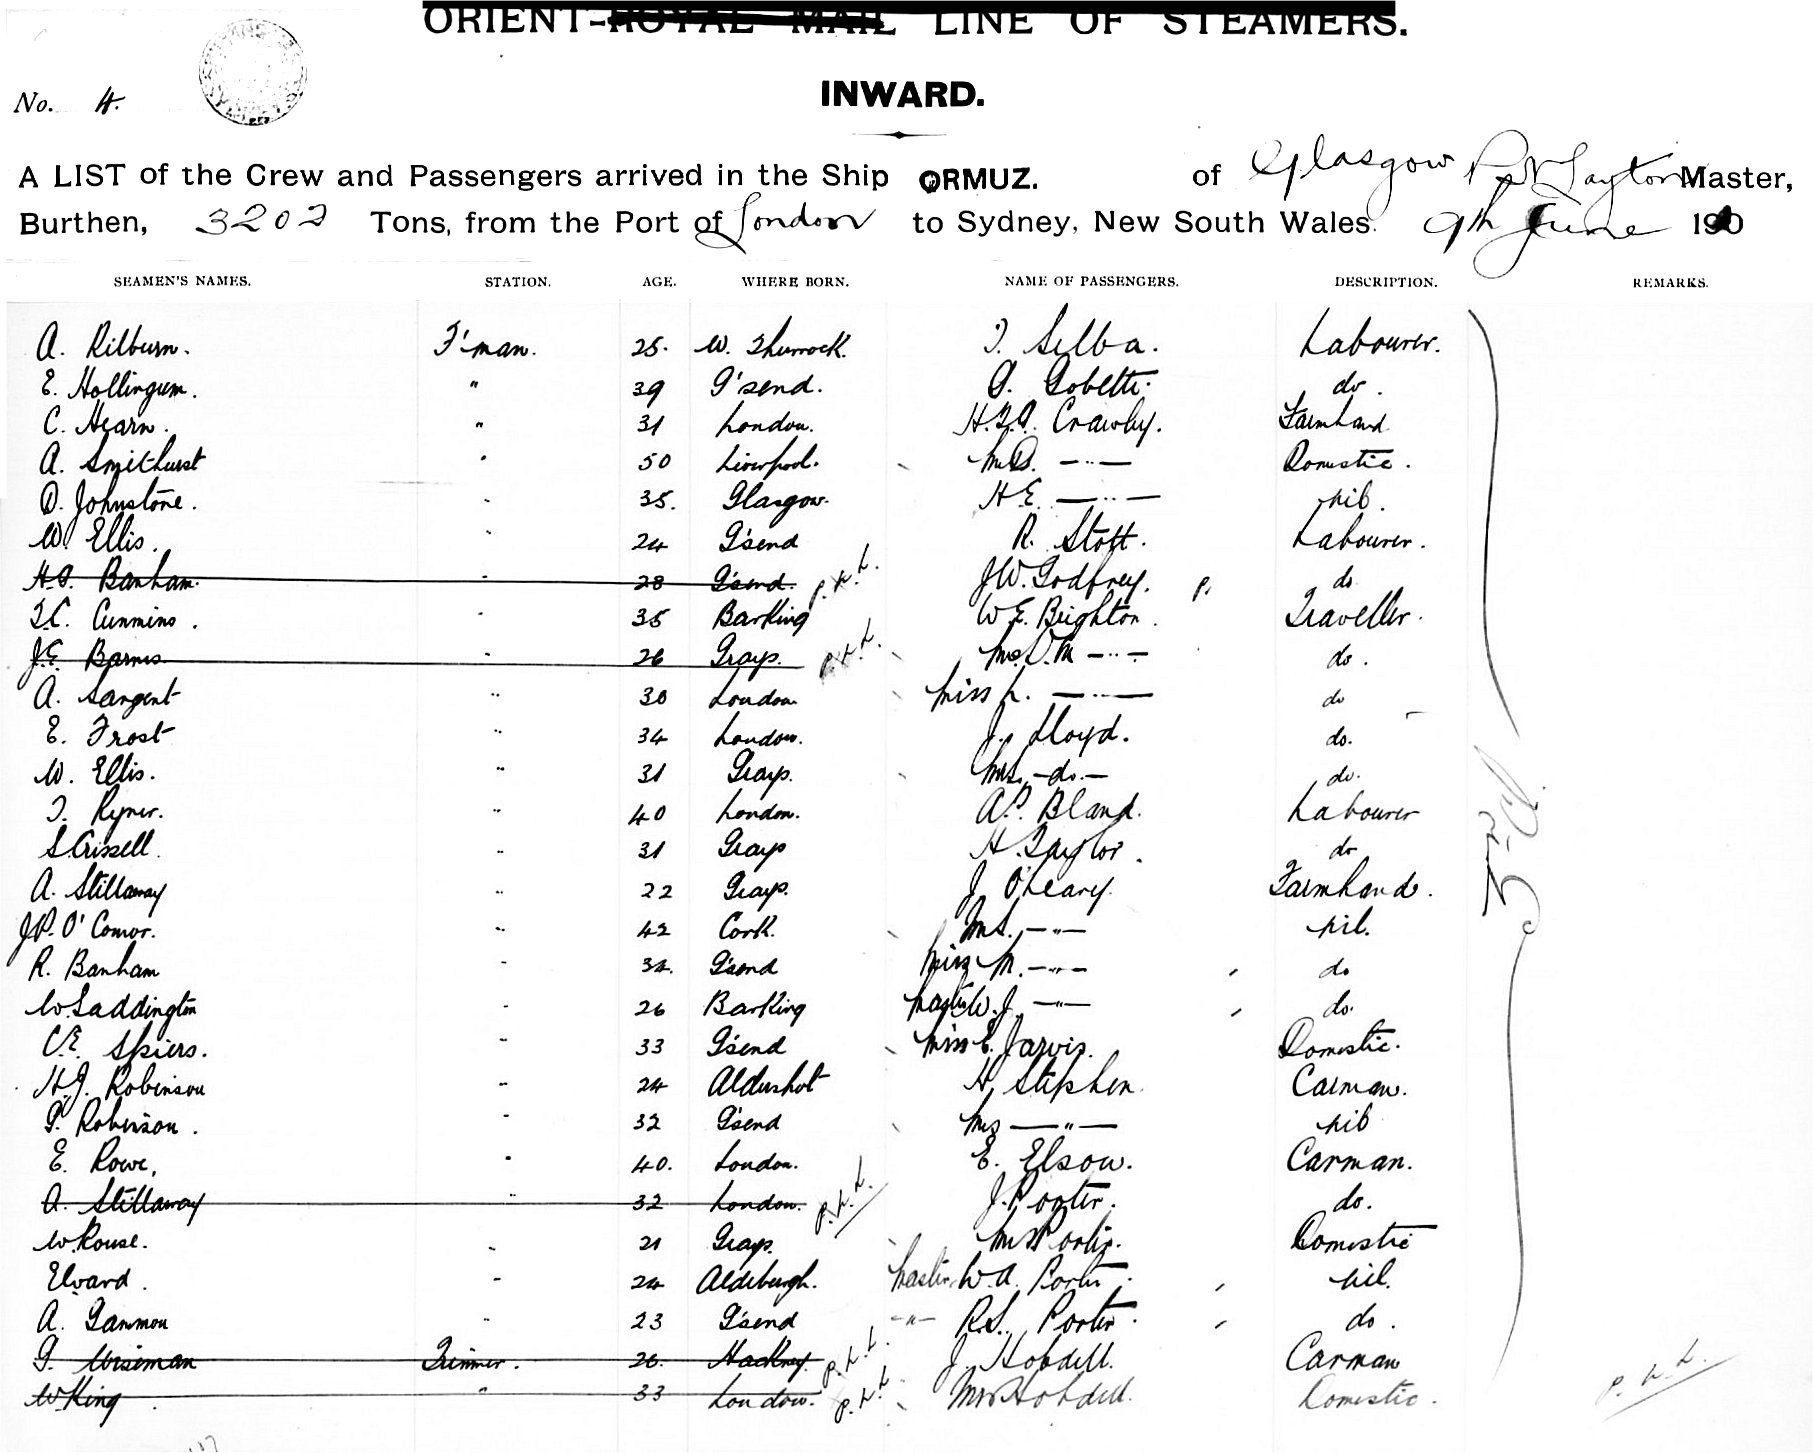 ORIENT-ROYAL MAIL LINE OF STEAMERS.
INWARD.
No. 4.
A LIST of the Crew and Passengers arrived in the Ship ORMUZ. of Glasgow Master,
Burthen, 3202 Tons, from the Port of London to Sydney, New South Wales. 9th June 190
SEAMEN'S NAMES. STATION. AGE. WHERE BORN. NAME OF PASSENGERS. DESCRIPTION. REMARKS.
A. Kilburn. F'man. 25. W. Thurrock. T. Selba. Labourer.
E. Hollingum. " 39 G'send. G. Gobetti. do.
C. Hearn. " 31 London. Crawley. Farmhand.
A. Smithurst " 50 Liverpool. Mrs. — " — Domestic.
D. Johnstone. " 35. Glasgow. H.E. — " — nil.
W. Ellis. " 24 G'send R. Stott. Labourer.
Banham. " 28 G'send. P.L.L. J.W. Godfrey. P. do
T.C. Cummins. " 35 Barking W.E. Brighton. Traveller.
J.E. Barnes " 26 Grays. P.L.L. Mrs. D.M — " — do.
A. Sargent " 30 London Miss L. — " — do
E. Frost " 34 London. J. Lloyd. do.
W. Ellis. " 31 Grays. Mrs. — do. — do.
T. Ryner. " 40 London. A.P. Bland. Labourer
S. Crissell. " 31 Grays H. Taylor. do
A. Stillaway " 22 Grays. J. O'Leary. Farmhand.
J.P. O'Connor. " 42 Cork. Mrs. — " — nil.
R. Banham " 32. G'send Miss M. — " — do
W. Saddington " 26 Barking Master W.J. — " — do.
C.E. Spiers. " 33 G'send Miss E. Jarvis. Domestic.
H.J. Robinson " 24 Aldershot H. Stephen. Carman.
Robinson. " 32 G'send Mrs — " — nil
E. Rowe, " 40. London. E. Elsow. Carman.
A. Stillaway " 32 London. P.L.L. J. Porter. do.
W. Rouse. " 21 Grays. Mrs Porter. Domestic
Elvard. " 24 Aldeburgh. Master W.A. Porter. nil.
A. Gammon " 23 G'send — " — R.S. Porter. do.
G. Wiseman Trimmer. 26. Hackney. P.L.L. J. Hobdell. Carman
W. King. " 33 London. P.L.L. Mrs Hobdell. Domestic. P.L.L.
3rd Cl.